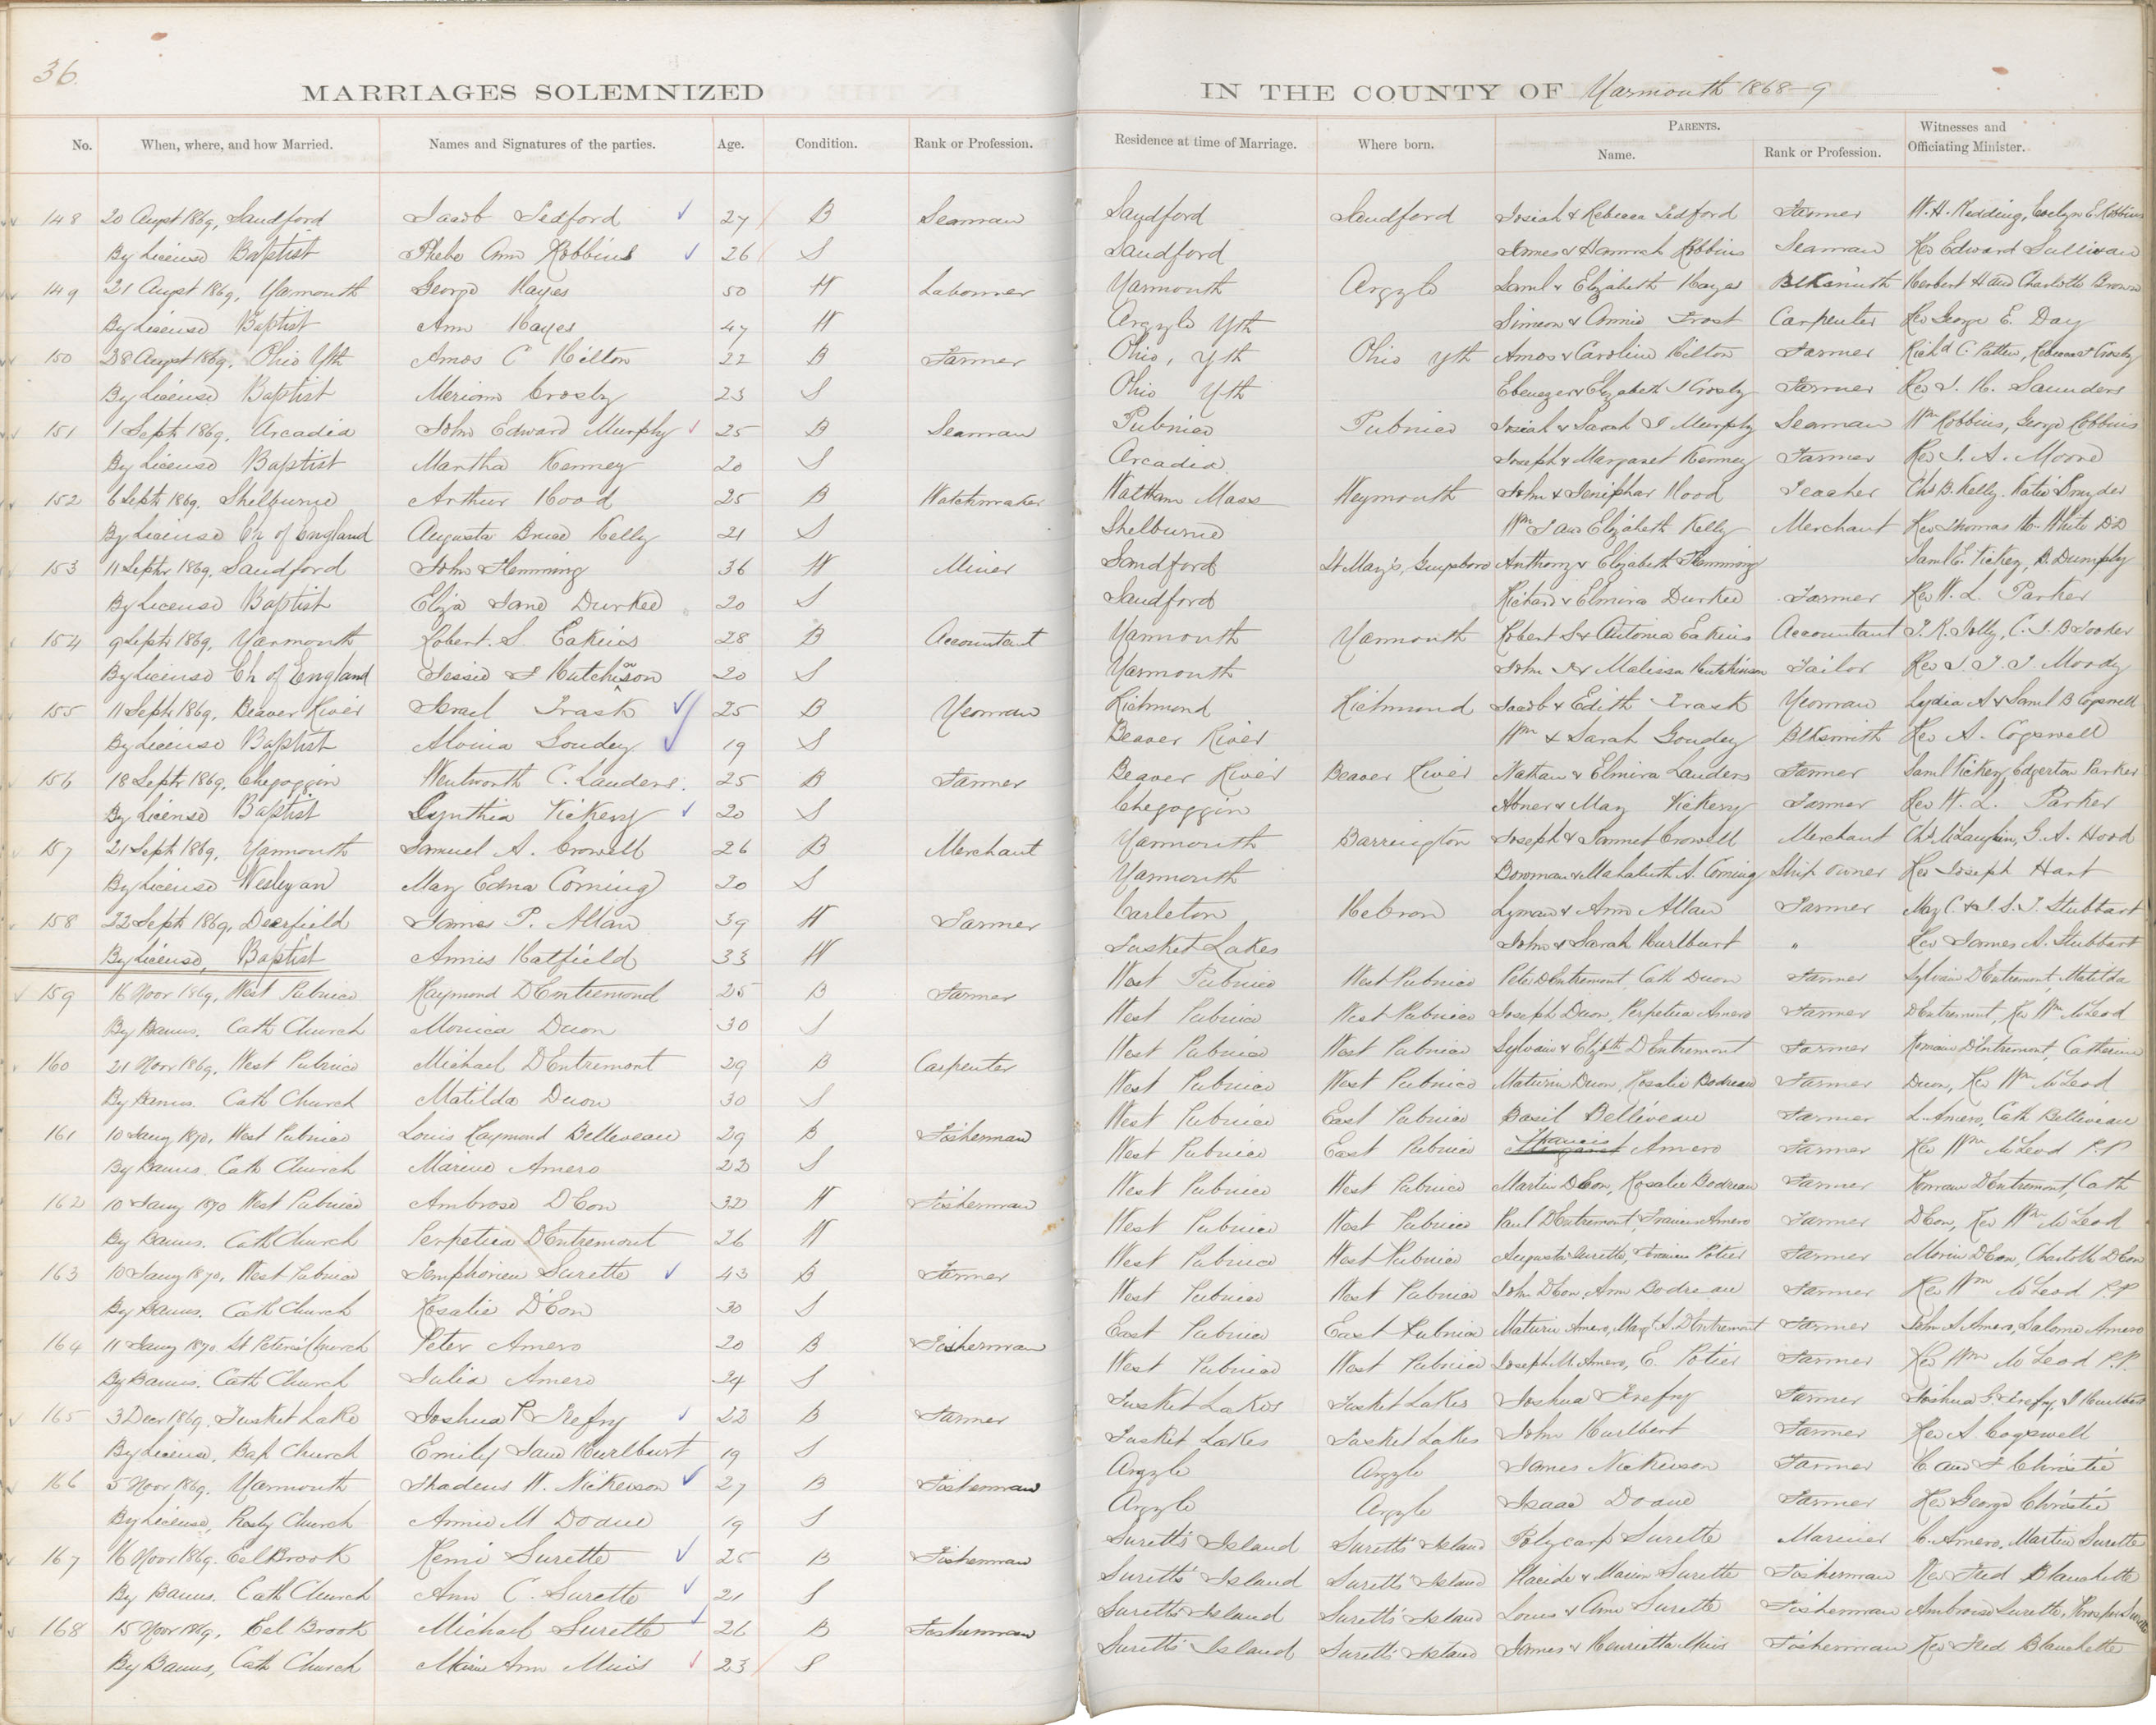 36.
MARRIAGES SOLEMNIZED IN THE COUNTY OF Yarmouth 1868-9
No. When, where, and how Married. Names and Signatures of the parties. Age. Condition. Rank or Profession. Residence at time of Marriage. Where born. PARENTS. Name. Rank or Profession. Witnesses and Officiating Minister.
148 20 Augst 1869, Sandford Jacob Tedford 27 B Seaman Sandford Sandford Josiah & Rebecca Tedford Farmer W. H. Redding, Evelyn E. Robbins
By License Baptist Phebe Ann Robbins 26 S Sandford James & Hannah Robbins Seaman Rev Edward Sullivan
149 21 Augst 1869, Yarmouth George Hayes 50 W Labourer Yarmouth Argyle Saml & Elizabeth Hayes Blksmith Herbert H and Charlotte Brown
By License Baptist Ann Hayes 47 W Argyle Yth Simeon & Annie Frost Carpenter Rev George E. Day
150 28 Augst 1869, Ohio Yth Amos C Hilton 22 B Farmer Ohio, Yth Ohio Yth Amos & Caroline Hilton Farmer Richd C. Patten, Rebecca F Crosby
By License Baptist Meriam Crosby 23 S Ohio Yth Ebenezer & Elizabeth J Crosby Farmer Rev J. H. Saunders
151 1 Septr 1869, Arcadia John Edward Murphy 25 B Seaman Pubnico Pubnico Josiah & Sarah J Murphy Seaman Wm Robbins, George Robbins
By License Baptist Martha Kenney 20 S Arcadia Joseph & Margaret Kenney Farmer Rev J. A. Moore
152 6 Septr 1869, Shelburne Arthur Hood 25 B Watchmaker Waltham Mass Weymouth John & Jeniphar Hood Teacher Chs B. Kelly. Katie Snyder
By License Ch of England Augusta Bruce Kelly 21 S Shelburne Wm J and Elizabeth Kelly Merchant Rev Thomas H. White DD
153 11 Septr 1869, Sandford John Flemming 36 W Miner Sandford St Mary's, Guysboro Anthony & Elizabeth Flemming Saml E. Vickery, B. Dumphy
By License Baptist Eliza Jane Durkee 20 S Sandford Richard & Elmira Durkee Farmer Rev W. L. Parker
154 9 Septr 1869, Yarmouth Robert. S. Eakins 28 B Accountant Yarmouth Yarmouth Robert S & Antonia Eakins Accountant J. R. Jolly, C. J. B Tooker
By License Ch of England Jessie F Hutchinson 20 S Yarmouth John & Malissa Hutchinson Tailor Rev J. T. T. Moody
155 11 Septr 1869, Beaver River Israel Trask 25 B Yeoman Richmond Richmond Jacob & Edith Trask Yeoman Lydia A & Saml B Cogswell
By License Baptist Alvinia Goudey 19 S Beaver River Wm & Sarah Goudey Blksmith Rev A. Cogswell
156 18 Septr 1869, Chegoggin Wentworth C. Landers. 25 B Farmer Beaver River Beaver River Nathan & Elmira Landers Farmer Saml Vickery, Edgerton Parker
By License Baptist Cynthia Vickery 20 S Chegoggin Abner & May Vickery Farmer Rev W. L. Parker
157 21 Septr 1869, Yarmouth Samuel A. Crowell 26 B Merchant Yarmouth Barrington Joseph & Crowell Merchant Chs McLaughlin, G. A. Hood
By License Wesleyan May Edna Corning 20 S Yarmouth Bowman & Mahaleth A. Corning Ship owner Rev Joseph Hart
158 22 Septr 1869, Deerfield James P. Allan 39 W Farmer Carleton Hebron Lyman & Ann Allan Farmer May C. & J. S. T. Stubbart
By License, Baptist Annis Hatfield 33 W Tusket Lakes John & Sarah Hurlburt " Rev James A. Stubbart
159 16 Novr 1869, West Pubnico Raymond DEntremond 25 B Farmer West Pubnico West Pubnico Peter DEntremont, Cath Duon Farmer Sylvain DEntremont, Matilda
By Banns. Cath Church Monica Duon 30 S West Pubnico West Pubnico Joseph Duon, Perpetua Amero Farmer DEntremont, Rev Wm McLeod
160 21 Novr 1869, West Pubnico Michael DEntremont 29 B Carpenter West Pubnico West Pubnico Sylvain & Elzbth DEntremont Farmer Romain DEntremont, Catherine
By Banns. Cath Church Matilda Duon 30 S West Pubnico West Pubnico Maturin Duon, Rosalie Bodreau Farmer Duon, Rev Wm McLeod
161 10 Jany 1870, West Pubnico Louis Raymond Belleveau 29 B Fisherman West Pubnico East Pubnico Basil Belliveau Farmer L. Amero, Cath Belliveau
By Banns. Cath Church Marine Amero 22 S West Pubnico East Pubnico Francis Amero Farmer Rev Wm McLeod P.P
162 10 Jany 1870 West Pubnico Ambrose DEon 32 W Fisherman West Pubnico West Pubnico Martin DEon, Rosalie Bodreau Farmer Romain DEntremont, Cath
By Banns. Cath Church Perpetua DEntremont 26 W West Pubnico West Pubnico Paul DEntremont, Francis Amero Farmer DEon, Rev Wm McLeod
163 10 Jany 1870, West Pubnico Simphorien Surette 43 B Farmer West Pubnico West Pubnico Augustin Surette, Potier Farmer DEon, Charlotte DEon
By Banns. Cath Church Rosalie D'Eon 30 S West Pubnico West Pubnico John DEon, Ann Bodreau Farmer Rev Wm McLeod P.P
164 11 Jany 1870. St Peters Church Peter Amero 20 B Fisherman East Pubnico East Pubnico Maturin Amero, Magt S. DEntremont Farmer John S Amero, Salome Amero
By Banns. Cath Church Julia Amero 24 S West Pubnico West Pubnico Joseph M. Amero, E. Potier Farmer Rev Wm McLeod P.P.
165 3 Decr 1869. Tusket Lake Joshua P Trefry 22 B Farmer Tusket Lakes Tusket Lakes Joshua Trefry Farmer Joshua G. Trefry, J Hurlbert
By License, Bap Church Emily Jane Hurlburt 19 S Tusket Lakes Tusket Lakes John Hurlbert Farmer Rev A. Cogswell
166 5 Novr 1869. Yarmouth Thadeus W. Nickerson 27 B Fisherman Argyle Argyle James Nickerson Farmer C and F Christie
By License, Presby Church Annie M Doane 19 S Argyle Argyle Isaac Doane Farmer Rev George Christie
167 16 Novr 1869. Eel Brook Remi Surette 25 B Fisherman Suretts Island Suretts' Island Polycarp Surette Mariner C. Amero, Martin Surette
By Banns. Cath Church Ann C. Surette 21 S Suretts' Island Suretts' Island Placide & Marian Surette Fisherman Rev Fred Blanchette
168 15 Novr 1869, Eel Brook Michael Surette 26 B Fisherman Suretts Island Suretts' Island Louis & Ann Surette Fisherman Ambroise Surette, Surette
By Banns, Cath Church Marie Ann Muis 23 S Suretts' Island Suretts Island James & Henrietta Muis Fisherman Rev Fred Blanchette